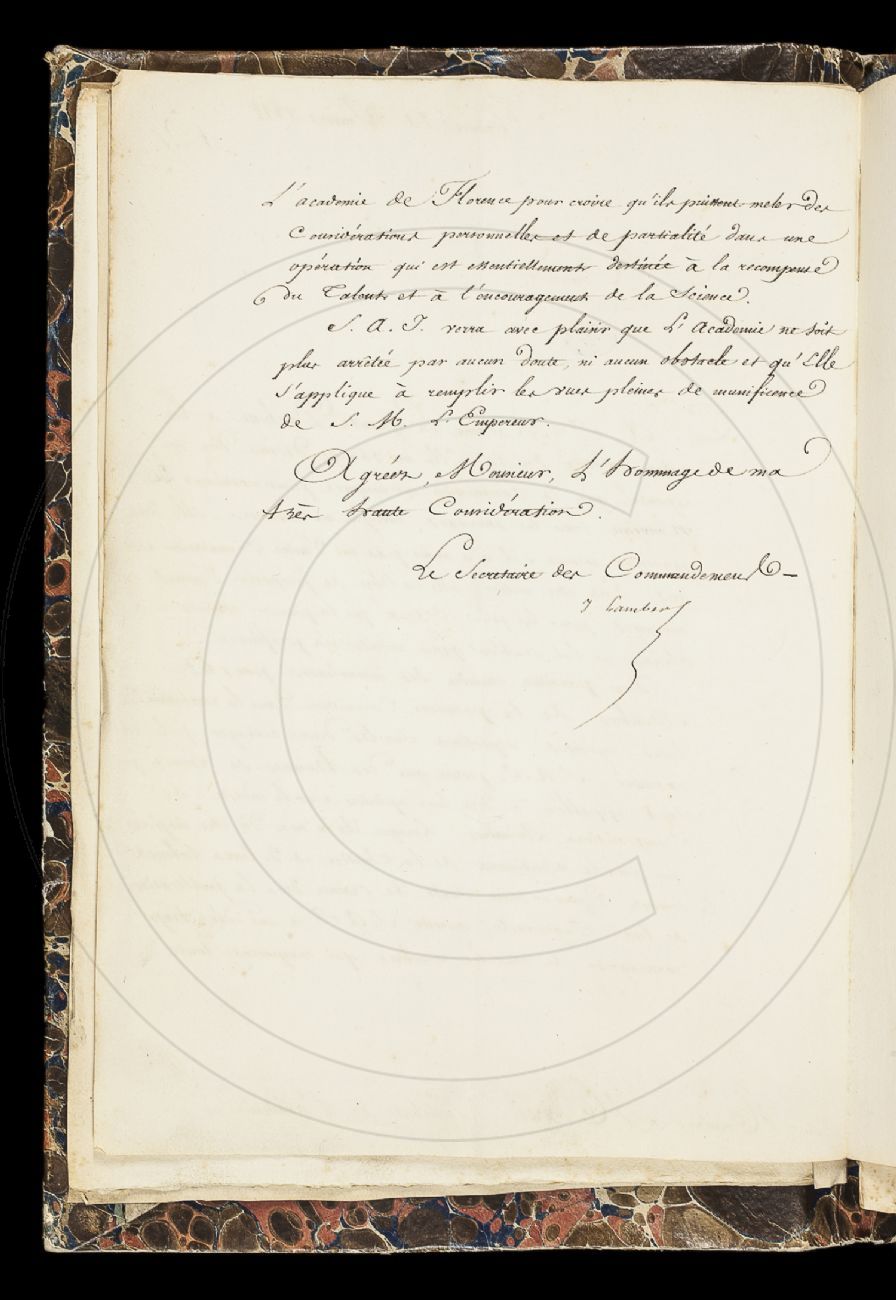 L'academie de Florence pour croire qu'ils puissent meler des
Considérations personnelles et de partialité dans une
opération qui est essentiellement destinée à la recompense
du Talent et à l'encouragement de la Science.
S. A. I. verra avec plaisir que L'Academie ne soit
plus arrêtée par aucun doute, ni aucun obstacle et qu'Elle
s'applique à remplir les vues pleines de munificence
de S. M. L'Empereur.
Agréez, Monsieur, L'hommage de ma
très haute Considération.
Le Secretaire des Commandemens
Lambert